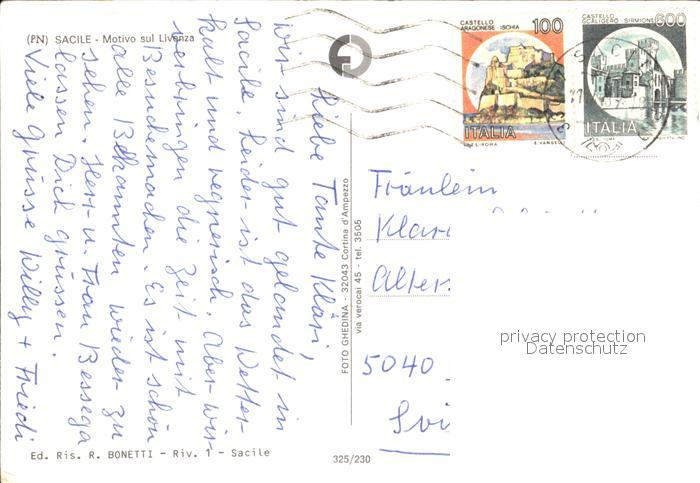 (PN) SACILE - Motivo sul Livenza
CASTELLO
ARAGONESE - ISCHIA
100
ITALIA
CASTELLO
SCALIGERO - SIRMIONE
600
ITALIA
Liebe Tante Kläri,
wir sind gut gelandet in
Sacile leider ist das Wetter
kalt und regnerisch. Aber wir
verbringen die Zeit mit
Besuchemachen. Es ist schön
alle Bekannten wieder zu
sehen. Herr u. Frau Bessega
lassen Dich grüssen.
Viele Grüsse Willy + Friedi
FOTO GHEDINA - 32043 Cortina d'Ampezzo
via verocai 45 - tel. 3505
Fräulein
Klar
Alter
5040
Svi
privacy protection
Datenschutz
Ed. Ris. R. BONETTI - Riv. 1 - Sacile
325/230